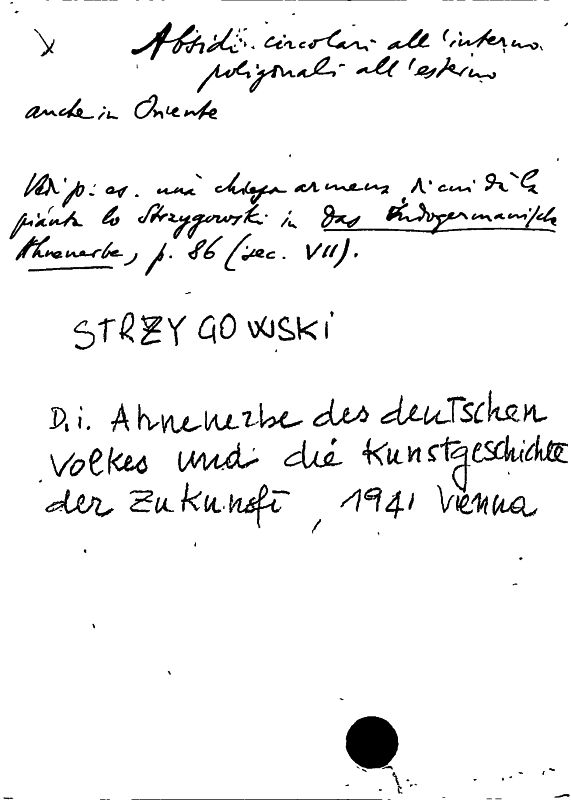 X Absidi circolari all'interno
poligonali all'esterno
anche in Oriente
Vedi p. es. una chiesa armena di cui dà la
pianta lo Strzygowski in das Indogermanische
Ahnenerbe, p. 86 (sec. VII).
STRZYGOWSKI
D. i. Ahnenerbe des deutschen
Volkes und die Kunstgeschichte
der Zukunft, 1941 Vienna